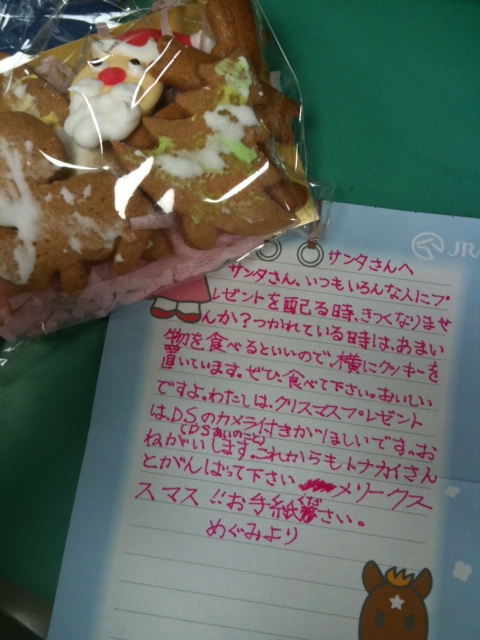 JRA
サンタさんへ
サンタさん、いつもいろんな人にプ
レゼントを配る時、きつくなりませ
んか?つかれている時は、あまい
物を食べるといいので、横にクッキーを
置いています。ぜひ、食べて下さい。おいしい
ですよ。わたしは、クリスマスプレゼント
は、DSのカメラ付きがほしいです。お
(DSあいのこと)
ねがいします。これからもトナカイさん
とがんばって下さい メリークス
スマス!!お手紙くださ い。
めぐみより